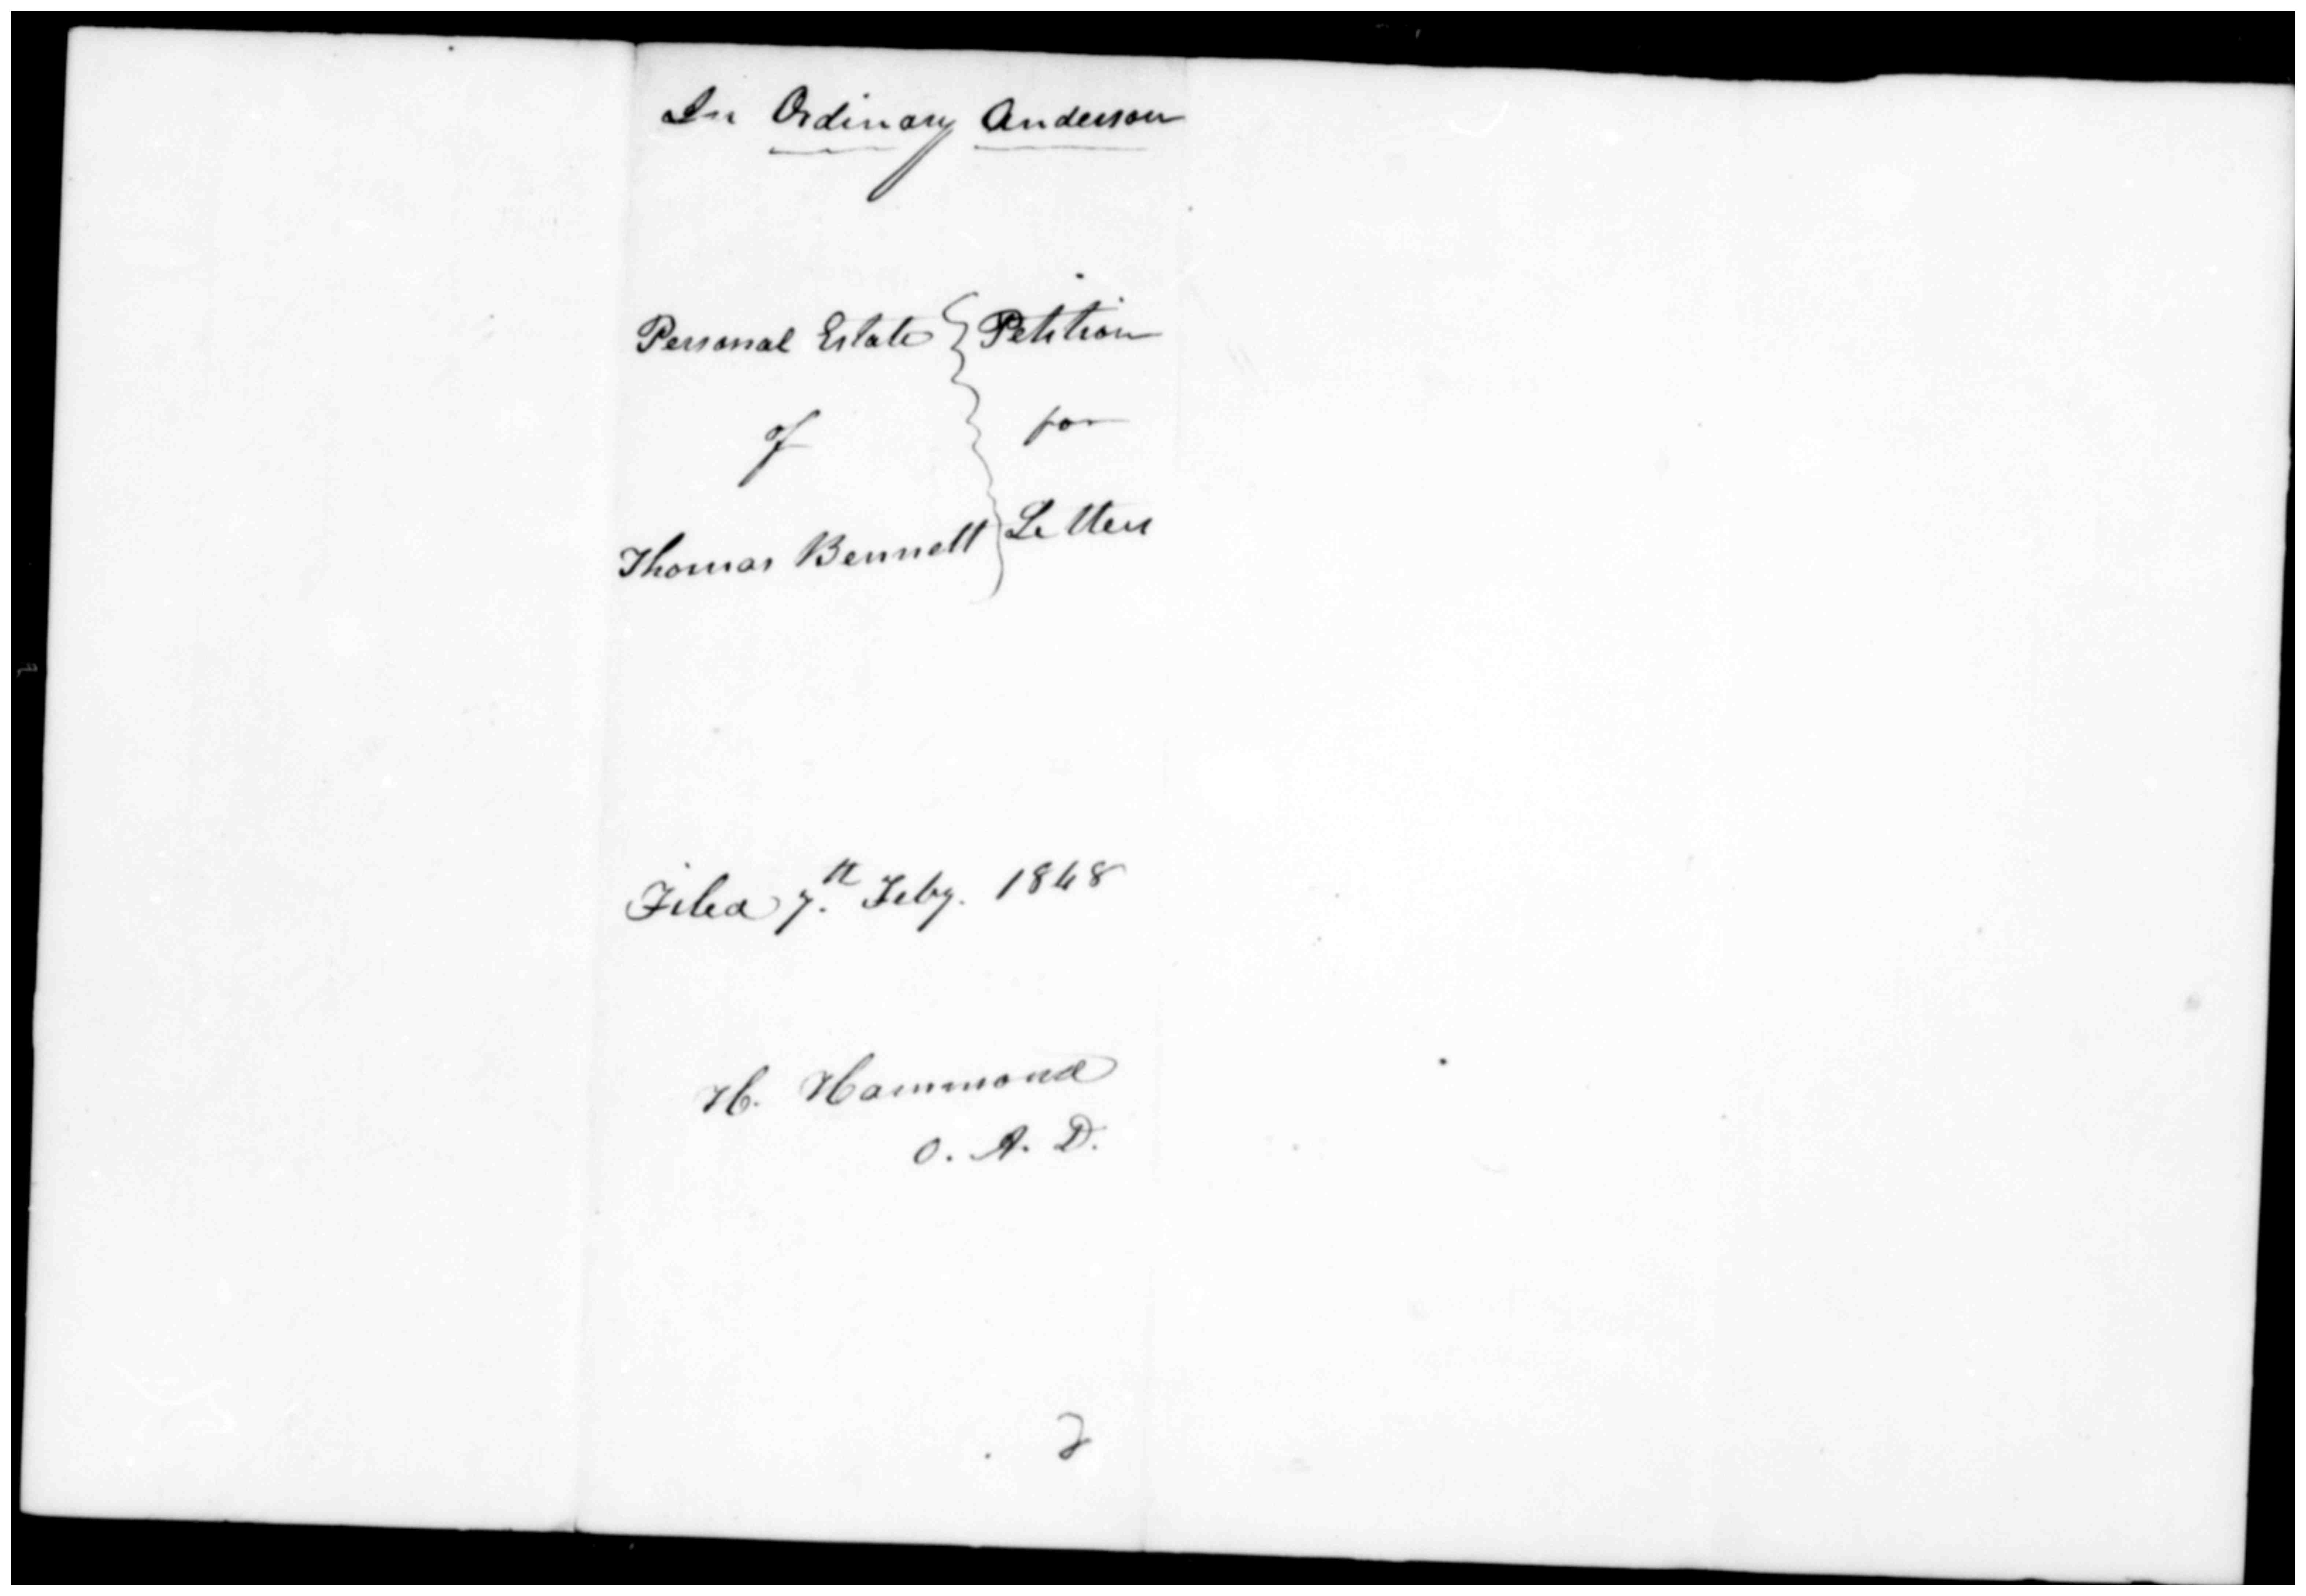 In Ordinary Anderson
Personal Estate } Petition
of for
Thomas Bennett Letters
Filed 7.th Feby. 1848
H. Hammond
O. A. D.
2